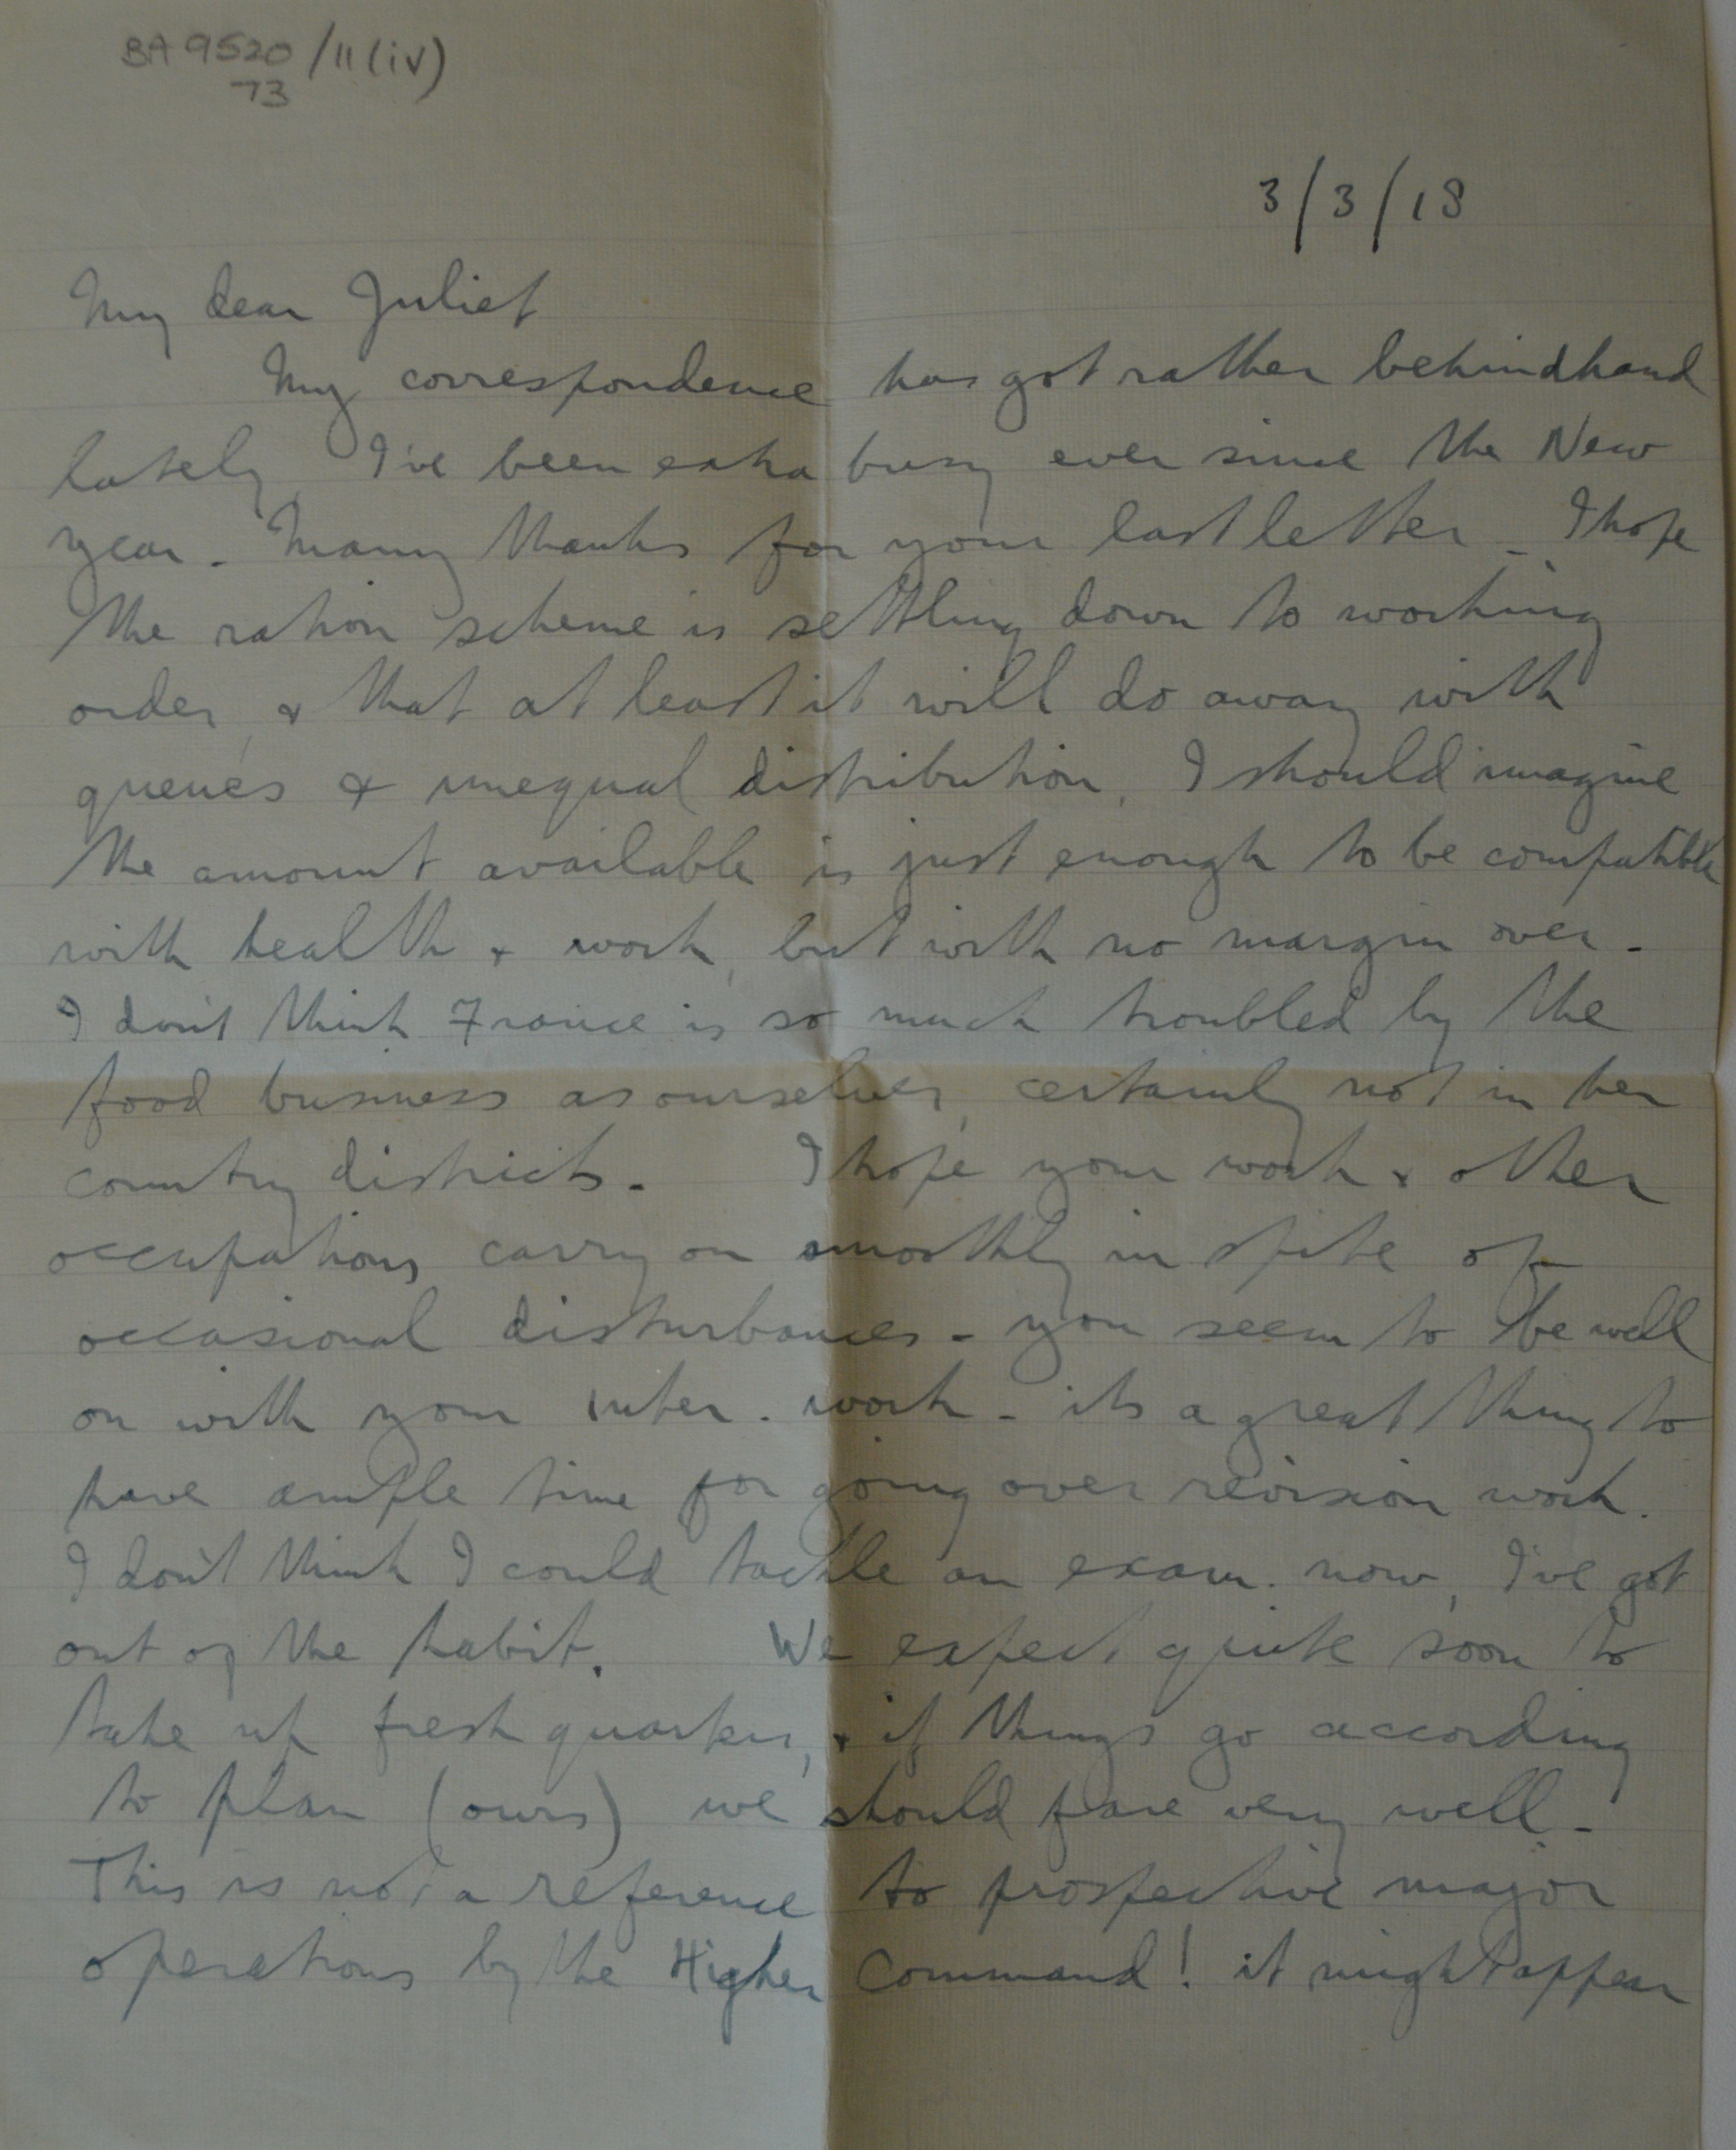 BA 9520/11(iv)
73
3/3/18
My dear Juliet
My correspondence has got rather behindhand
lately, I've been extra busy ever since the New
year. Many thanks for your last letter - I hope
the ration scheme is settling down to working
order, & that at least it will do away with
queues & unequal distribution, I should imagine
the amount available is just enough to be compatible
with health & work, but with no margin over -
I don't think France is so much troubled by the
food business as ourselves, certainly not in her
country districts - I hope your work & other
occupations carry on smoothly in spite of
occasional disturbances - you seem to be well
on with your inter. work - its a great thing to
have ample time for going over revision work.
I don't think I could tackle an exam. now, I've got
out of the habit. We expect quite soon to
take up fresh quarters, & if things go according
to plan (ours) we should fare very well -
This is not a reference to prospective major
operations by the Higher Command! it might appear